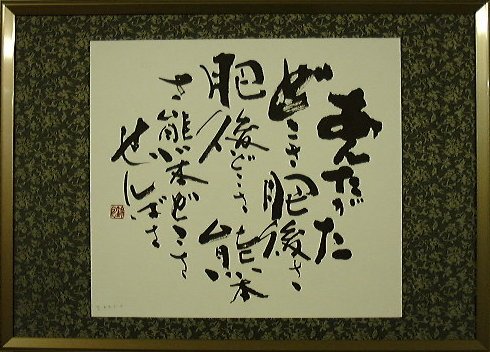 あんたがた
どこさ肥後さ
肥後どこさ熊本
さ熊本どこさ
せんばさ